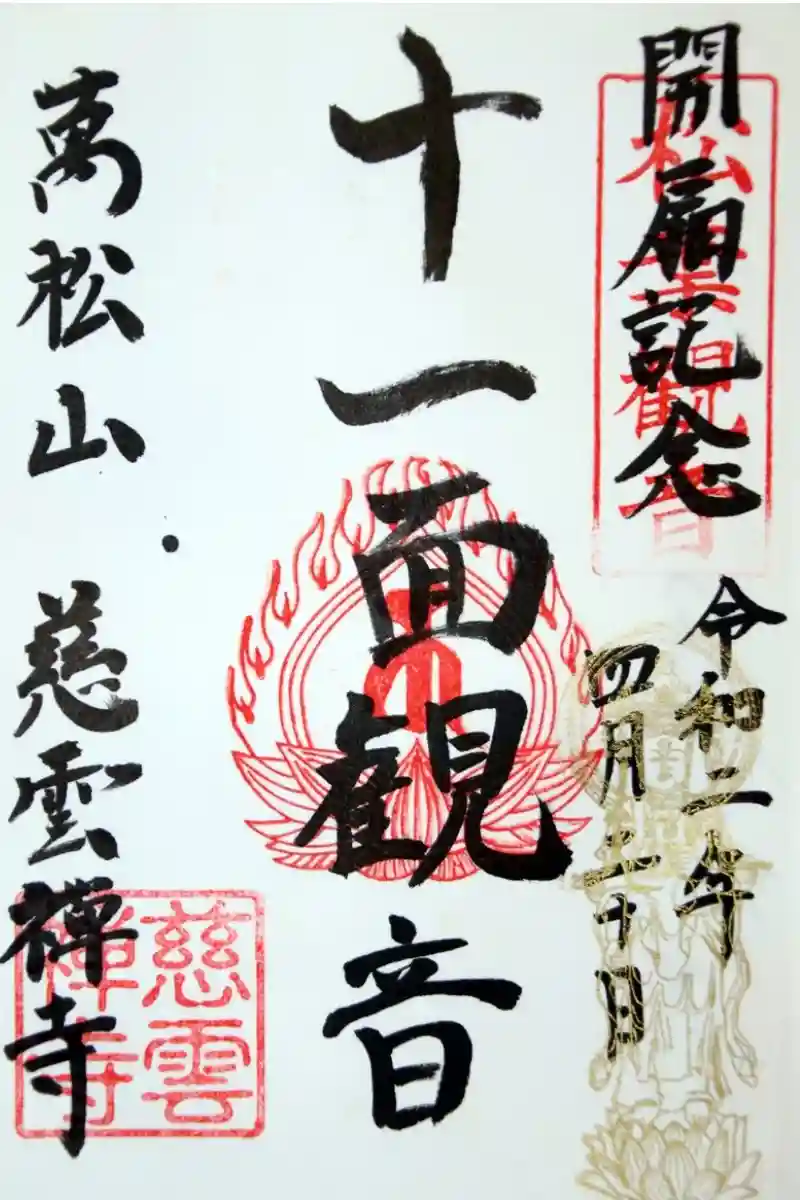 開扉記念
松雲観音
令和二年
四月二十日
十一面観音
萬松山 慈雲禅寺
慈雲
禅寺